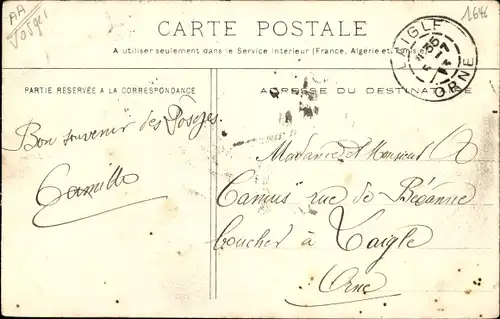 AA
Vosges
1646
CARTE POSTALE
A utiliser seulement dans le Service Intérieur (France, Algérie et Tunisie)
PARTIE RÉSERVÉE A LA CORRESPONDANCE
ADRESSE DU DESTINATAIRE
L'AIGLE
ORNE
Bon souvenir des Vosges.
Camille
Madame et Monsieur A
Camus rue de Bécanne
boucher à Laigle
Orne